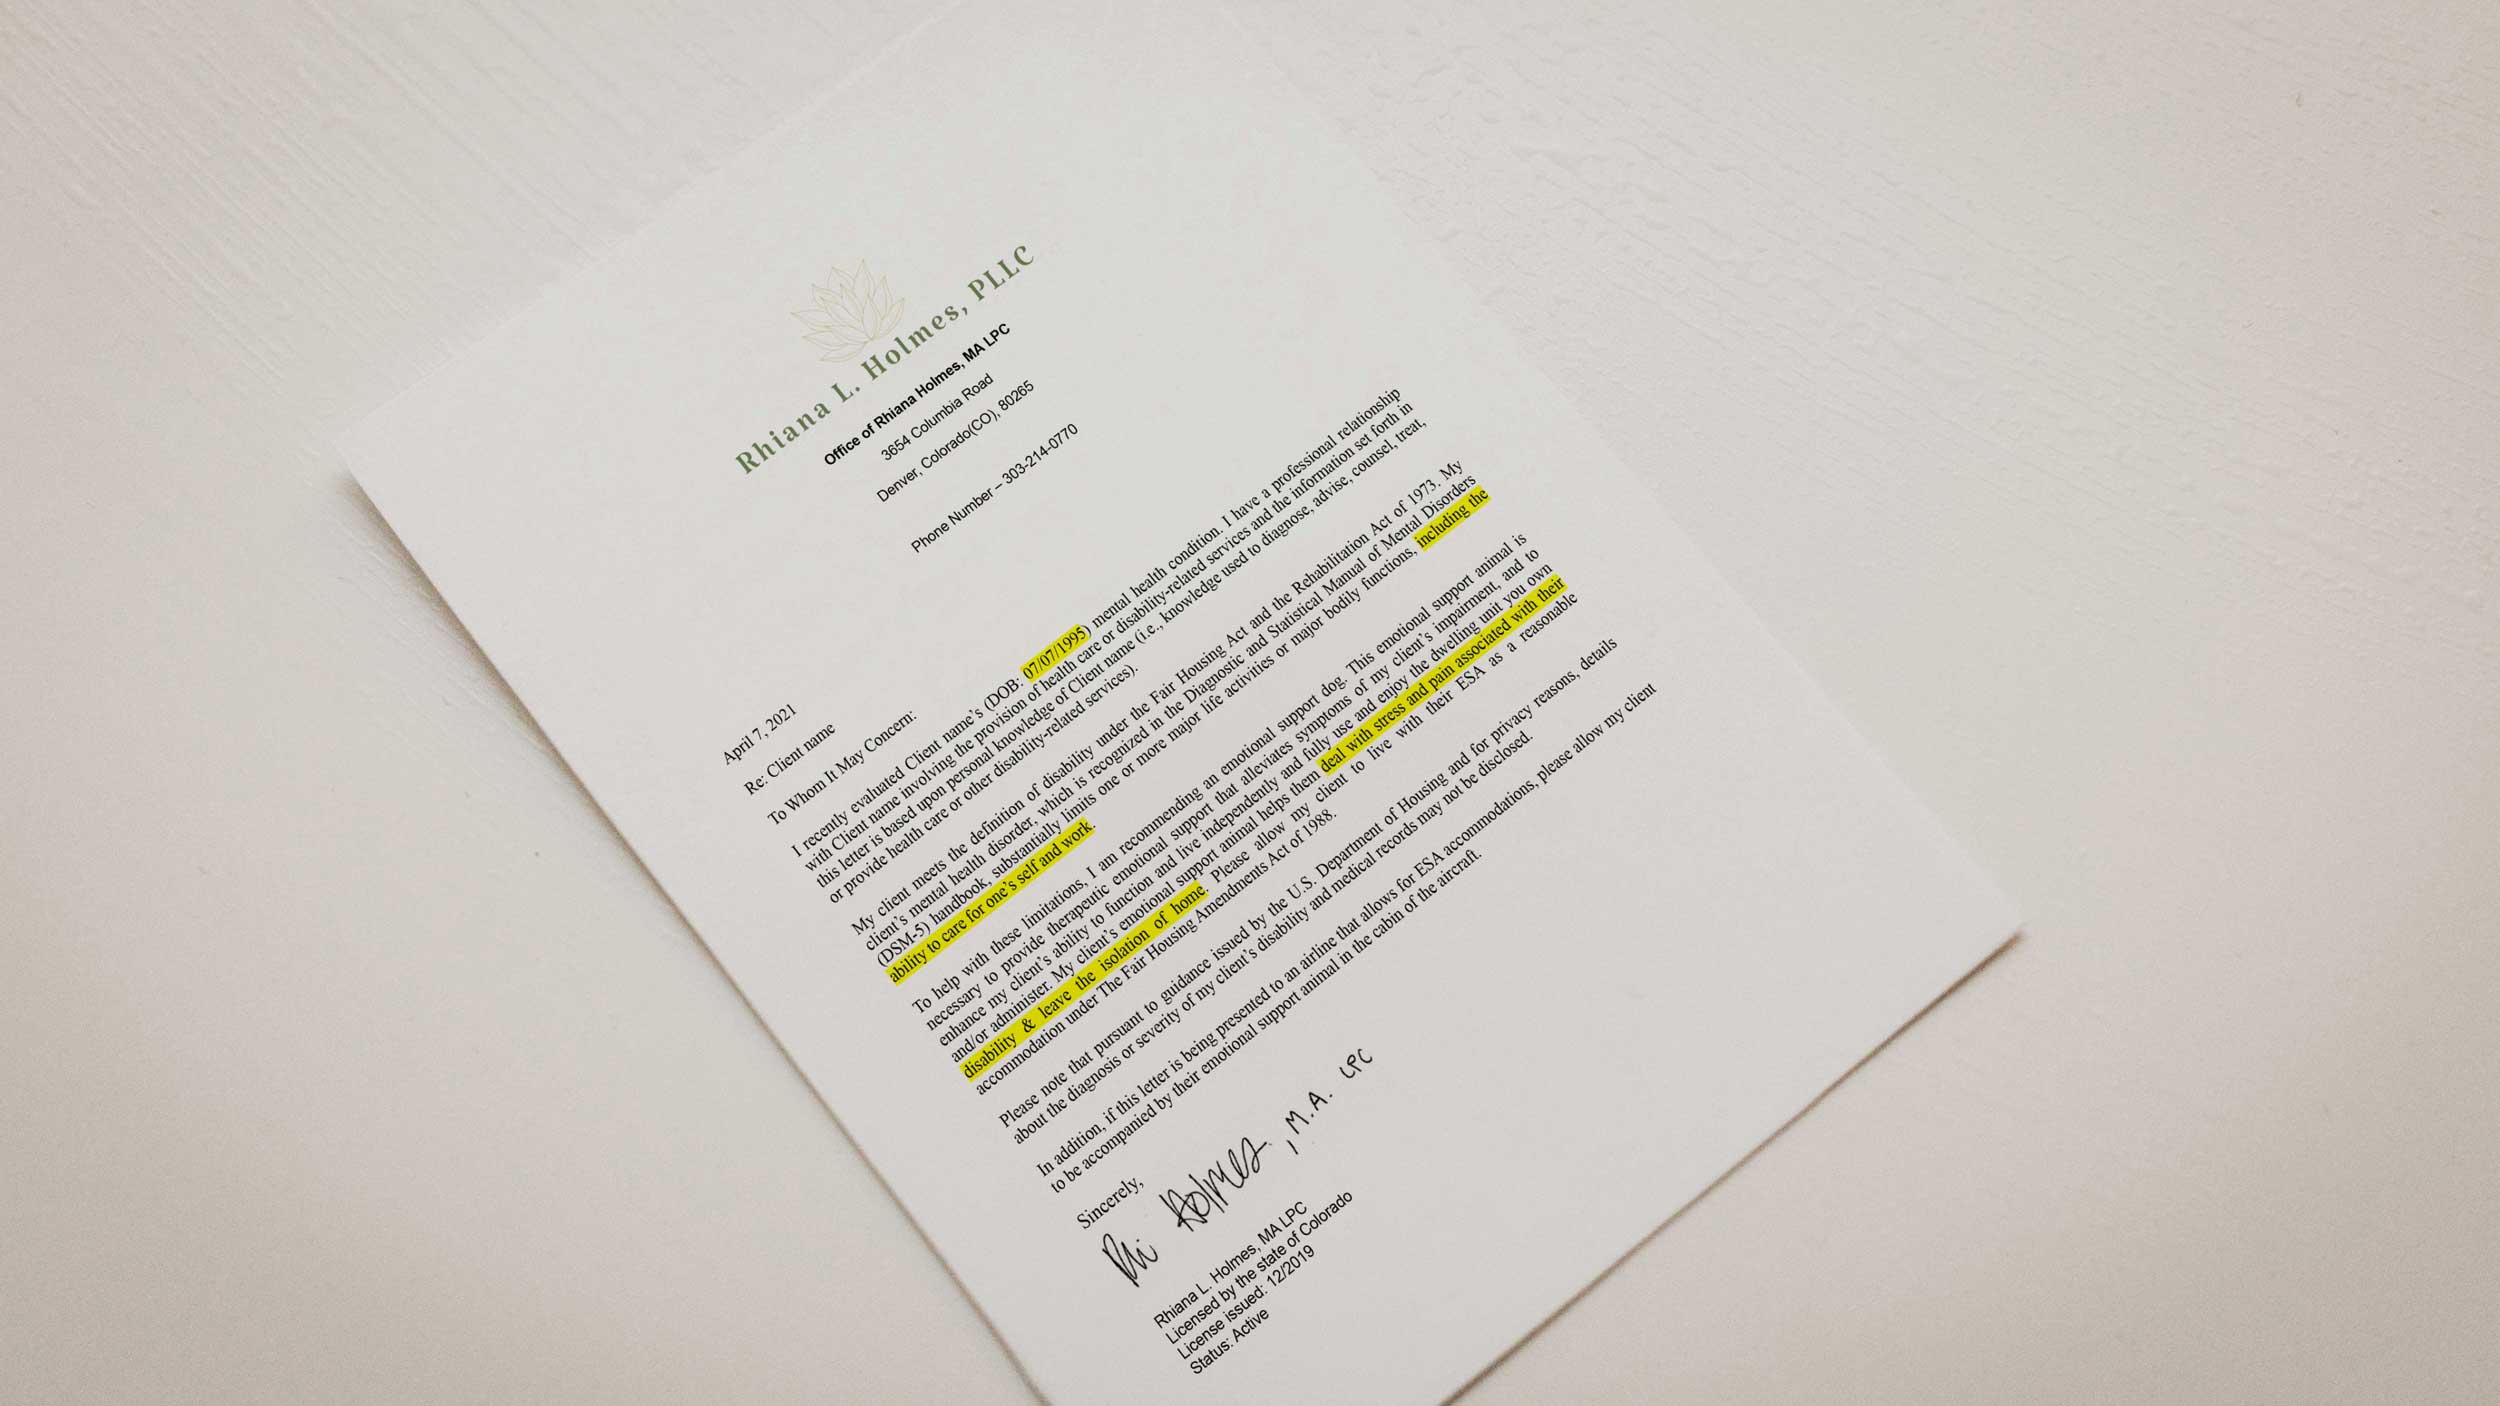 Rhiana L. Holmes, PLLC
Office of Rhiana Holmes, MA LPC
3654 Columbia Road
Denver, Colorado(CO), 80265
Phone Number – 303-214-0770
April 7, 2021
Re: Client name
To Whom It May Concern:
I recently evaluated Client name's (DOB: 07/07/1995) mental health condition. I have a professional relationship
with Client name involving the provision of health care or disability-related services and the information set forth in
this letter is based upon personal knowledge of Client name (i.e., knowledge used to diagnose, advise, counsel, treat,
or provide health care or other disability-related services).
My client meets the definition of disability under the Fair Housing Act and the Rehabilitation Act of 1973. My
client's mental health disorder, which is recognized in the Diagnostic and Statistical Manual of Mental Disorders
(DSM-5) handbook, substantially limits one or more major life activities or major bodily functions, including the
ability to care for one's self and work.
To help with these limitations, I am recommending an emotional support dog. This emotional support animal is
necessary to provide therapeutic emotional support that alleviates symptoms of my client's impairment, and to
enhance my client's ability to function and live independently and fully use and enjoy the dwelling unit you own
and/or administer. My client's emotional support animal helps them deal with stress and pain associated with their
disability & leave the isolation of home. Please allow my client to live with their ESA as a reasonable
accommodation under The Fair Housing Amendments Act of 1988.
Please note that pursuant to guidance issued by the U.S. Department of Housing and for privacy reasons, details
about the diagnosis or severity of my client's disability and medical records may not be disclosed.
In addition, if this letter is being presented to an airline that allows for ESA accommodations, please allow my client
to be accompanied by their emotional support animal in the cabin of the aircraft.
Sincerely,
Rhi Holmes, M.A. LPC
Rhiana L. Holmes, MA LPC
Licensed by the state of Colorado
License issued: 12/2019
Status: Active